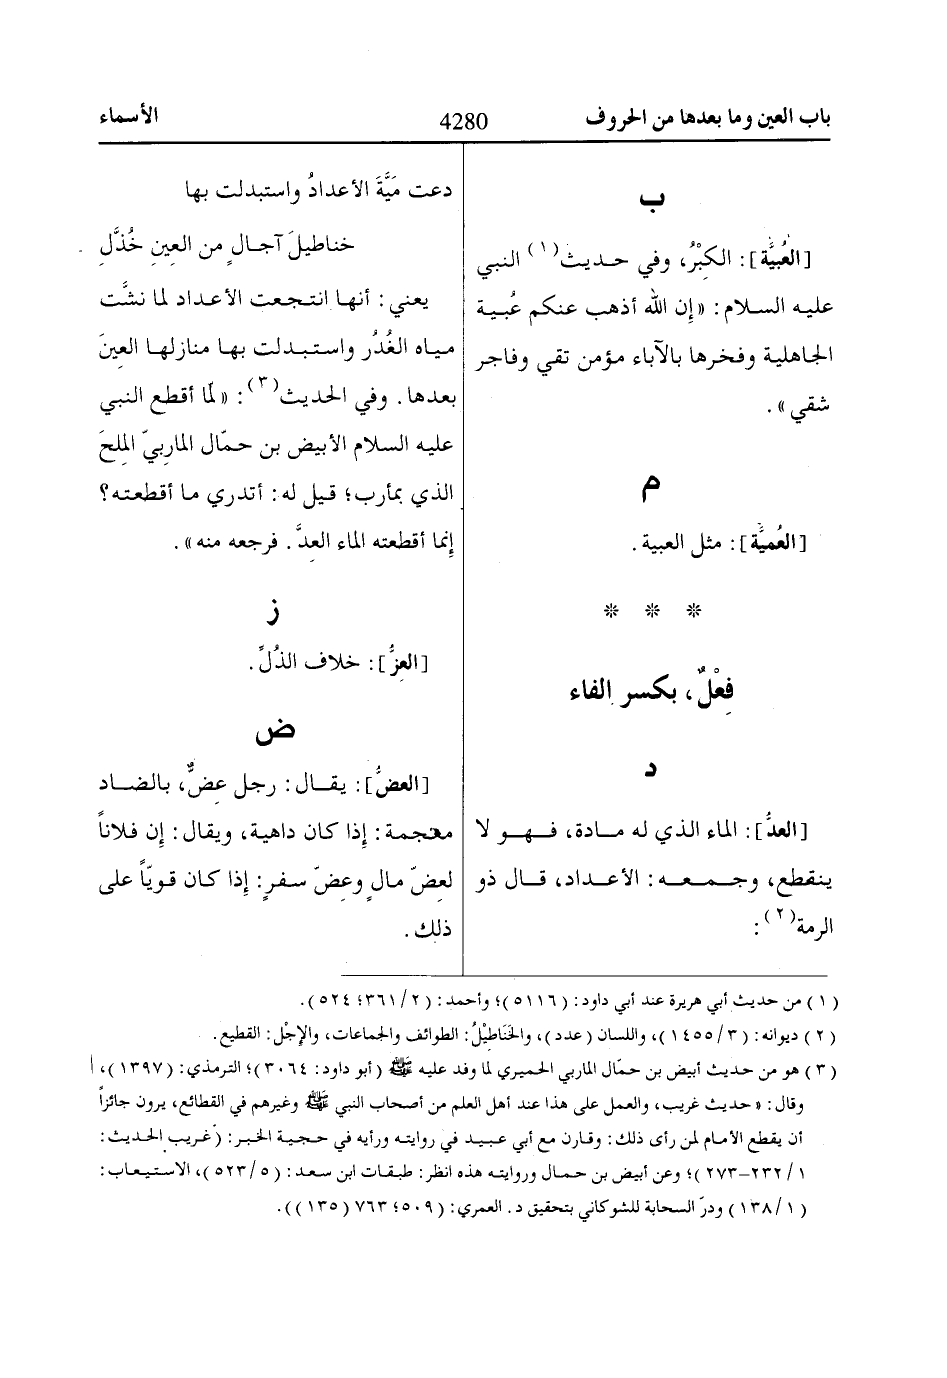 باب العين وما بعدها من الحروف
4280
الأسماء
ب
[العُبِيَّة]: الكِبْرُ، وفي حديث(١) النبي
عليه السلام: «إن الله أذهب عنكم عُبية
الجاهلية وفخرها بالآباء مؤمن تقي وفاجر
شقي».
م
[العُمِيَّة]: مثل العبية.
* * *
فِعْلٌ، بكسر الفاء
د
[العِدُّ]: الماء الذي له مادة، فهو لا
ينقطع، وجمعه: الأعداد، قال ذو
الرمة(٢):
دعت مَيَّةَ الأعدادُ واستبدلت بها
خناطيلَ آجالٍ من العِينِ خُذَّلِ
يعني: أنها انتجعت الأعداد لما نشَّت
مياه الغُدُر واستبدلت بها منازلها العِينَ
بعدها. وفي الحديث(٣): «لمّا أقطع النبي
عليه السلام الأبيض بن حمّال الماربيّ الملحَ
الذي بمأرب؛ قيل له: أتدري ما أقطعته؟
إِنما أقطعته الماء العِدَّ. فرجعه منه».
ز
[العِزُّ]: خلاف الذُلِّ.
ض
[العِضُّ]: يقال: رجل عِضٌّ، بالضاد
معجمة: إِذا كان داهية، ويقال: إِن فلاناً
لعِضّ مالٍ وعِضّ سفرٍ: إِذا كان قويّاً على
ذلك.
(١) من حديث أبي هريرة عند أبي داود: (٥١١٦)؛ وأحمد: (٢/٣٦١؛ ٥٢٤).
(٢) ديوانه: (٣/١٤٥٥)، واللسان (عدد)، والخَناطِيْلُ: الطوائف والجماعات، والإِجْل: القطيع.
(٣) هو من حديث أبيض بن حمّال الماربي الحميري لما وفد عليه ﷺ (أبو داود: ٣٠٦٤)؛ الترمذي: (١٣٩٧)،
وقال: «حديث غريب، والعمل على هذا عند أهل العلم من أصحاب النبي ﷺ وغيرهم في القطائع، يرون جائزاً
أن يقطع الأمام لمن رأى ذلك: وقارن مع أبي عبيد في روايته ورأيه في حجية الخبر: (غريب الحديث:
١/٢٣٢–٢٧٣)؛ وعن أبيض بن حمال وروايته هذه انظر: طبقات ابن سعد: (٥/٥٢٣)، الاستيعاب:
(١/١٣٨) ودرّ السحابة للشوكاني بتحقيق د. العمري: (٥٠٩؛ ٧٦٣ (١٣٥)).